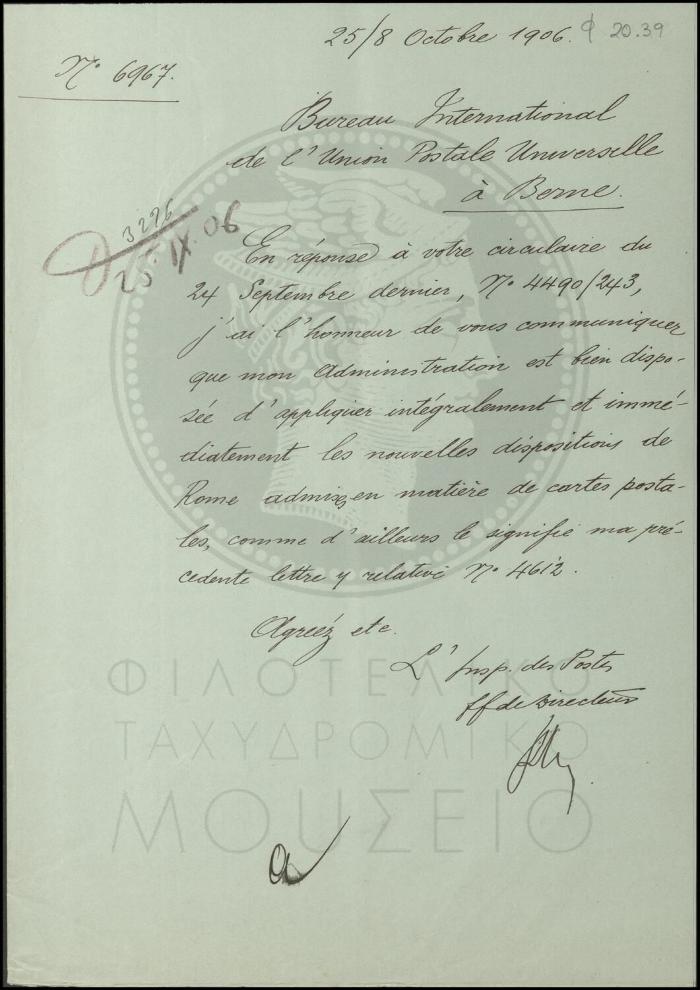 25/8 Octobre 1906.
20.39
Nº 6967.
Bureau International
de l'Union Postale Universelle
à Berne.
3226
25. IX. 06
En réponse à votre circulaire du
24 Septembre dernier, Nº 4490/243,
j'ai l'honneur de vous communiquer
que mon Administration est bien dispo-
sée d'appliquer intégralement et immé-
diatement les nouvelles dispositions de
Rome admises en matière de cartes posta-
les, comme d'ailleurs le signifie ma pré-
cedente lettre y relative Nº 4612.
Agréez etc.
L'Insp. des Postes
ff de Directeur
ΦΙΛΟΤΕΛΙΚΟ
ΤΑΧΥΔΡΟΜΙΚΟ
ΜΟΥΣΕΙΟ